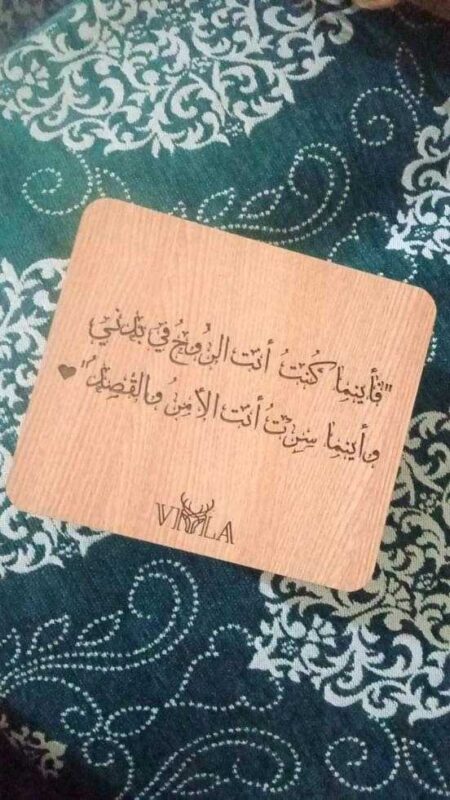 "فأينما كُنتُ أنت الرُوحُ في بدني
وأينما سِرتُ أنت الأمنُ والقصدُ"
VIOLA